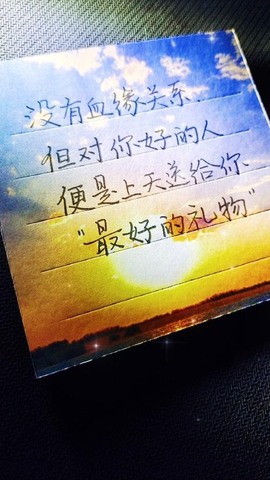 没有血缘关系.
但对你好的人
便是上天送给你、
“最好的礼物”